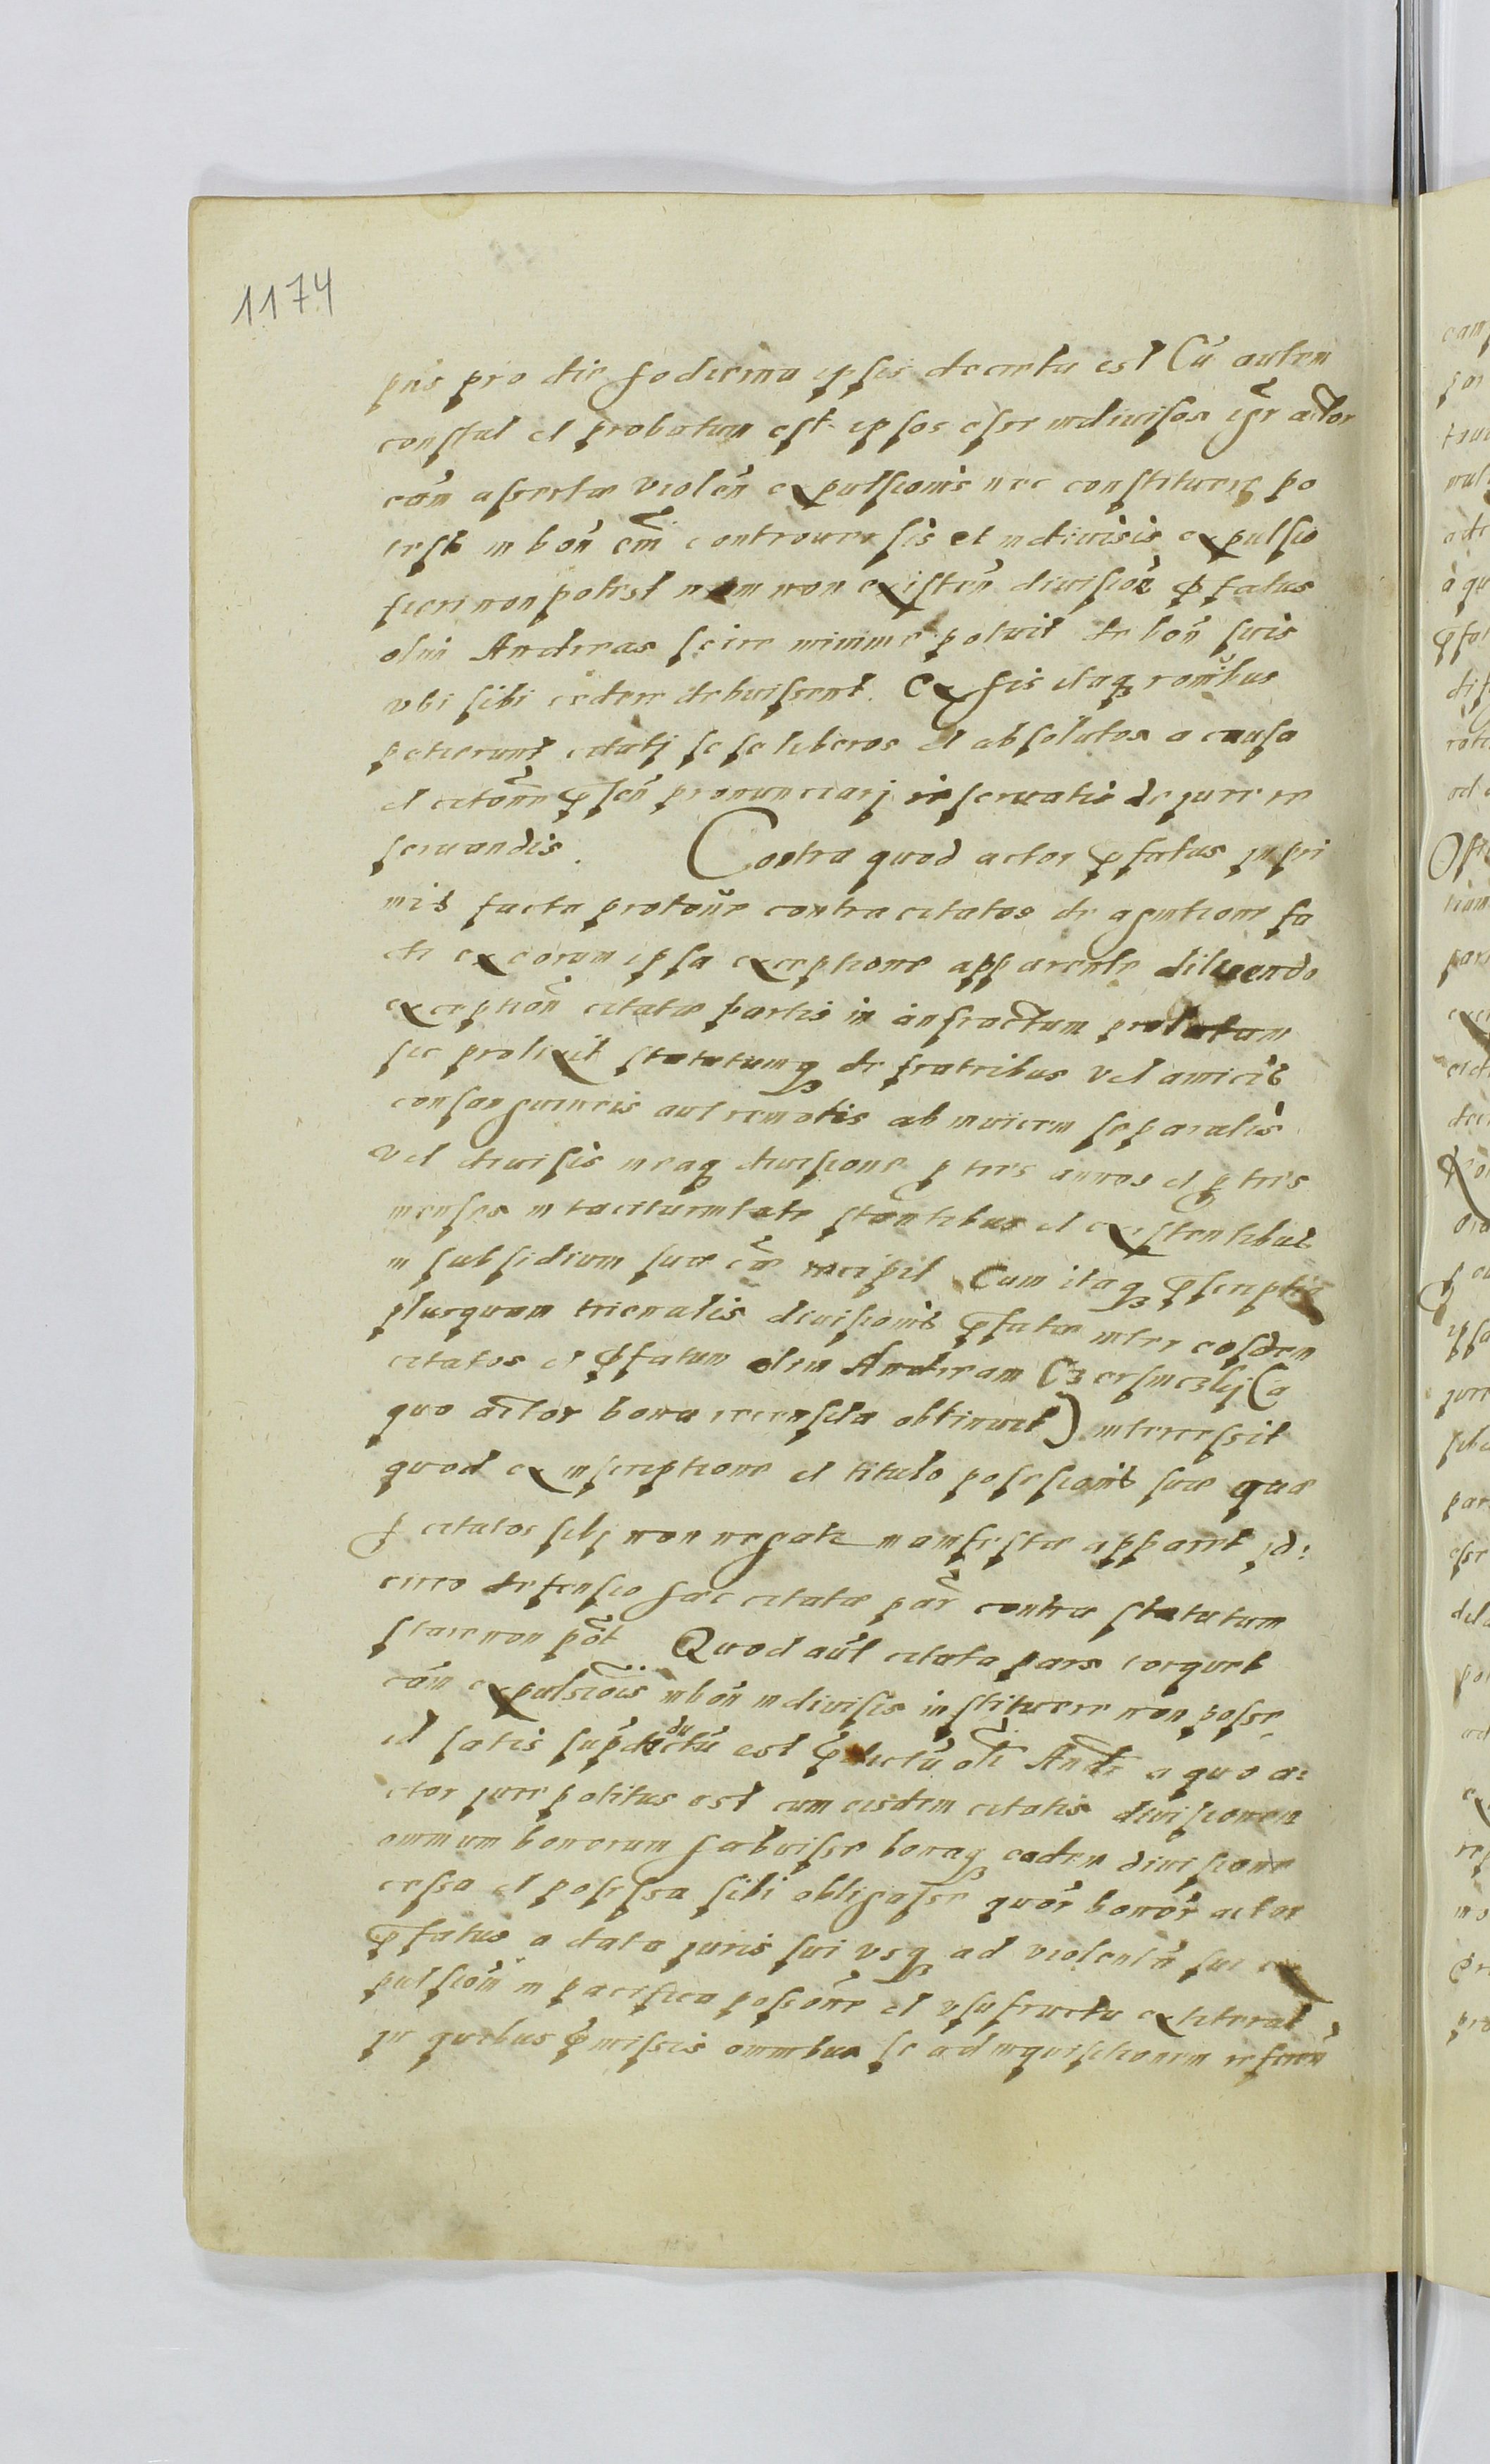 1174
pñs pro die hodierna ipsis decreta est Cũ autem
constat et probatum est ipsos esse indivisos igr̃ actor
cãm assertæ violeñ expulsionis nec constituere po
test in boñ em̃ controversis et indivisis expulsio
fieri non potest nam non existeñ divisioe p̃fatus
olim Andreas scire minime potuit de boñ suis
ubi sibi cedere debuissent. Ex his itaqȝ ronibus
petierunt citatj se se liberos et absolutos a causa
et citõne p̃señ pronunciarj reservatis de jure re
servandis. Contra quod actor p̃fatus in pri
mis facta protone contra citatos de agnitione fa
cti ex eorum ipsa exceptione apparente diluendo
exceptioñ citatæ partis in anfractum prolatam
sic prolixit statutumqȝ de fratribus vel amicis
consanguineis aut remotis ab invicem separatis
vel divisis neaq divisione p tres annos et p tres
menses in taciturnitate stantibus et existentibus
in subsidium suæ cæ recipit Cum itaqȝ p̃scriptio
plusquam trienalis divisionis p̃fatæ inter eosdem
citatos et p̃fatum olim Andream Czersniczkj (a
quo actor bona recensita obtinuit) intercessit
quod ex inscriptione et titulo possessionis suæ quæ
p citatos sibj non negatr manifeste apparet id:
circo defensio hæc citatæ par̃ contra statutum
stare non põt Quod aũt citata pars torquet
cãm expulsiõis in boñ indivisis instituere non posse
id satis sup̃ dedu ctũ est p̃dictũ oli Andr̃ a quo a:
ctor jure potitus est cum eisdem citatis divisionem
omnium bonorum habuisse bonaqȝ eadem divisione
cessa et possessa sibi obligasse quor̃ bonor̃ actor
p̃fatus a data juris sui usqȝ ad violentã sui ex
pulsioñ in pacifica possõne et usufructu extiterat
in quibus p̃missis omnibus se ad inquisitionem refereñ